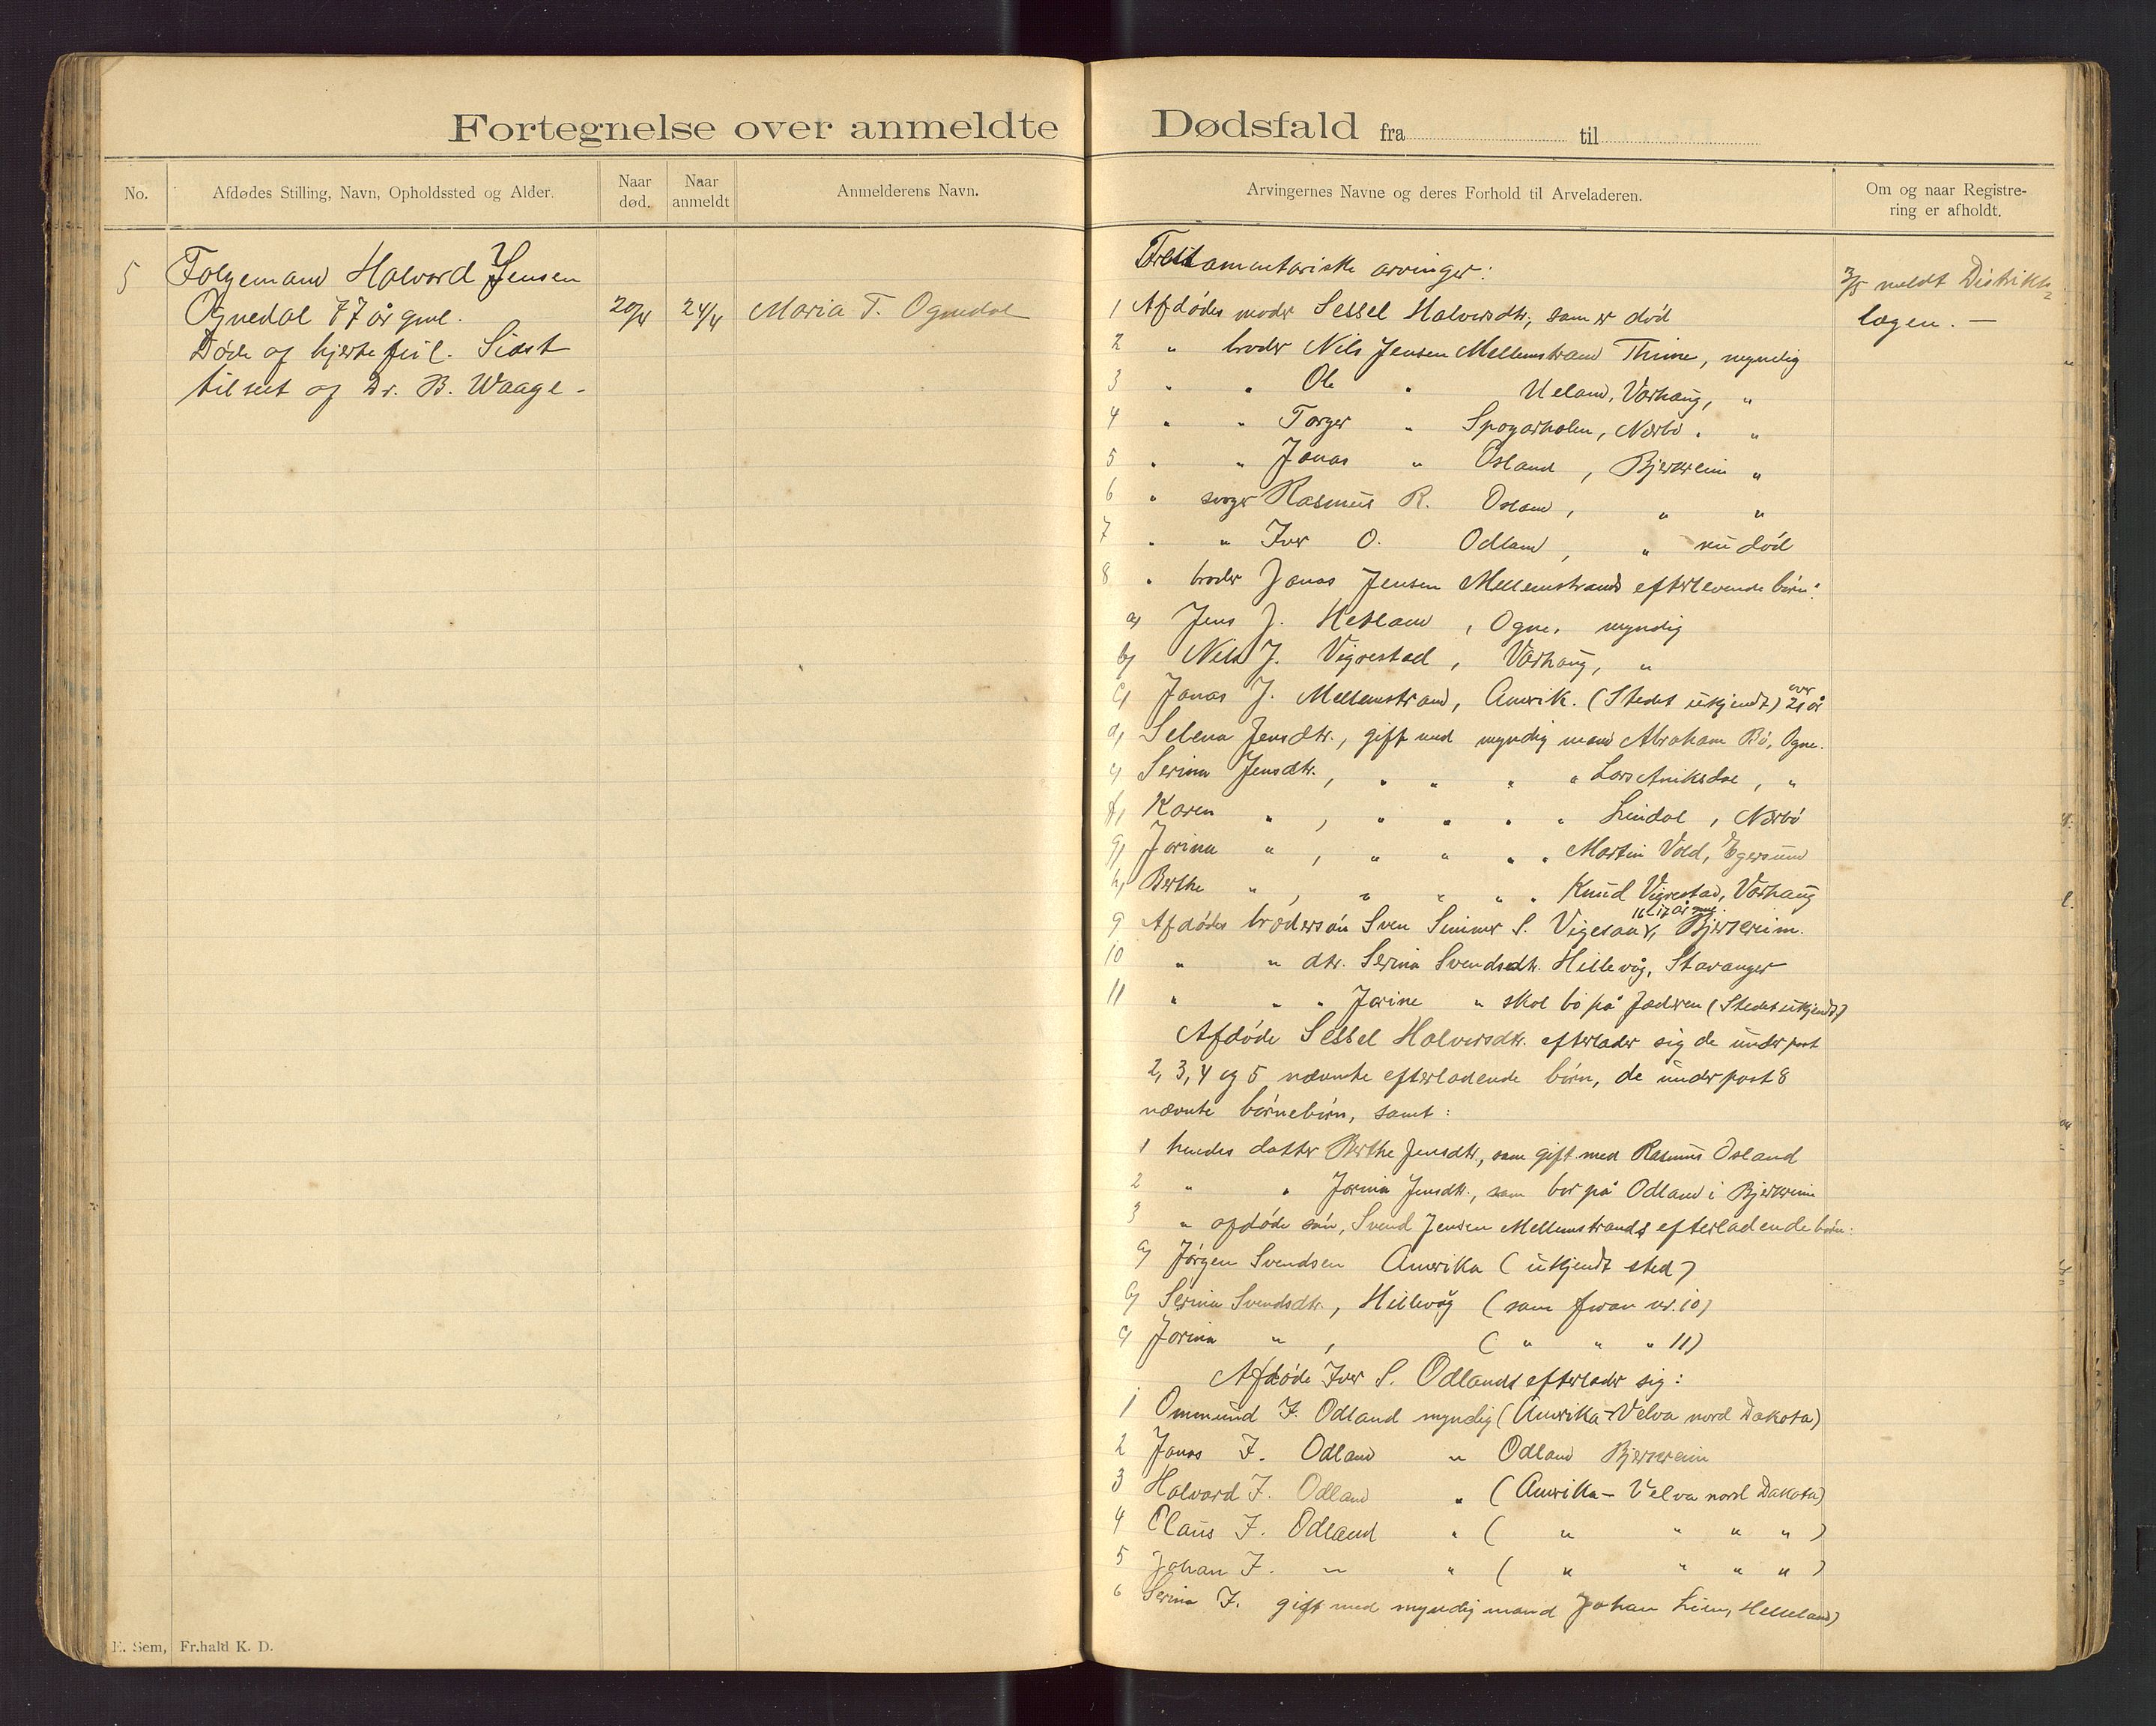 Fortegnelse over anmeldte Dødsfald fra til
No. Afdødes Stilling, Navn, Opholdssted og Alder. Naar død. Naar anmeldt Anmelderens Navn. Arvingernes Navne og deres Forhold til Arveladeren. Om og naar Registrering er afholdt.
5 Folgemand Halvard Jensen
Ognedal 77 år gml. 20/4 24/4 Maria T. Ognedal
Døde af hjertefeil. Sidst
tilseet af Dr. B. Waage -
Testamentariske arvinger:
1 Afdødes moder Sessel Halvorsdtr, som er død
2 " broder Nils Jensen Mellemstrand Thime, myndig
3 " " Ole " Ueland, Varhaug, "
4 " " Torger " Spogarholen, Nærbø. "
5 " " Jonas " Osland, Bjerkreim "
6 " svoger Rasmus R. Osland, " "
7 " " Iver O. Odland, " nu død
8 " broder Jonas Jensen Mellemstrands efterlevende børn:
a) Jens J. Hetland, Ogne, myndig
b) Nils J. Vigrestad, Varhaug, "
c) Jonas J. Mellemstrand, Amerik. (Stedet ukjendt) over 21 år
d) Selena Jensdtr., gift med myndig mand Abraham Bø, Ogne.
e) Serina Jensdtr., " " " " Lars Aniksdal, "
f) Karen " , " " " " Lindal, Nærbø
g) Jorina " , " " " " Martin Vold, Egersund
h) Berthe " , " " " " Knud Vigrestad, Varhaug
9 Afdødes brodersøn Sven S. Vigesand, Bjerkreim.
10 " " dtr. Serina Svendsdtr. Hillevåg, Stavanger
11 " " " Jorine " skal bo på Jædren (Stedet ukjendt)
Afdøde Sessel Halvorsdtr. efterlader sig de under post
2, 3, 4 og 5 nævnte efterladende børn, de under post 8
nævnte børnebørn, samt:
1 hendes datter Berthe Jensdtr., som gift med Rasmus Osland
2 " " Jorina Jensdtr., som bor på Odland i Bjerkreim
3 " afdøde søn, Svend Jensen Mellemstrands efterladende børn:
a) Jørgen Svendsen Amerika (ukjendt sted)
b) Serina Svendsdtr., Hillevåg (som foran nr. 10)
c) Jorina " , ( " " " 11)
Afdøde Iver S. Odlands efterlader sig:
1 Ommund I. Odland myndig (Amerika - Velva nord Dakota)
2 Jonas I. Odland " Odland Bjerkreim
3 Halvard I. Odland " (Amerika - Velva nord Dakota)
4 Claus I. Odland " ( " " " " )
5 Johan I. " " ( " " " " )
6 Serina I. gift med myndig mand Johan Helleland)
3/5 meldt Distrikts-
lægen. -
E. Sem, Fr.hald K. D.